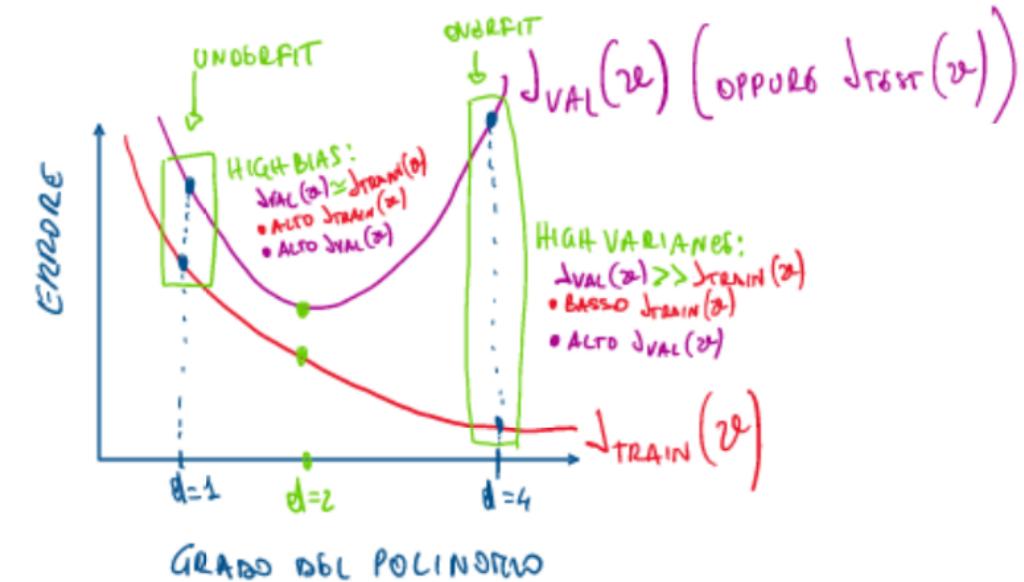 UNDERFIT
OVERFIT
J VAL(ϑ) (OPPURE J TEST(ϑ))
ERRORE
HIGH BIAS:
J VAL(ϑ) ≃ J TRAIN(ϑ)
• ALTO J TRAIN(ϑ)
• ALTO J VAL(ϑ)
HIGH VARIANCE:
J VAL(ϑ) >> J TRAIN(ϑ)
• BASSO J TRAIN(ϑ)
• ALTO J VAL(ϑ)
J TRAIN(ϑ)
d=1
d=2
d=4
GRADO DEL POLINOMIO